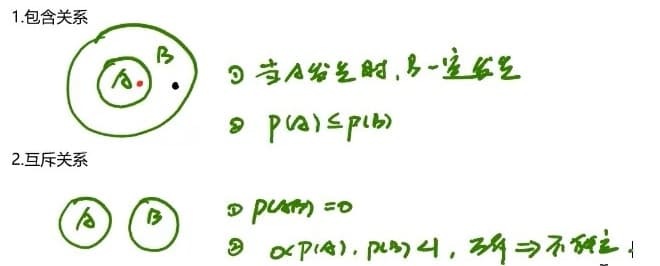 1.包含关系
A B
① 当A发生时,B一定发生
② P(A)≤P(B)
2.互斥关系
A B
① P(AB)=0
② 0<P(A),P(B)<1,互斥⇒不独立.